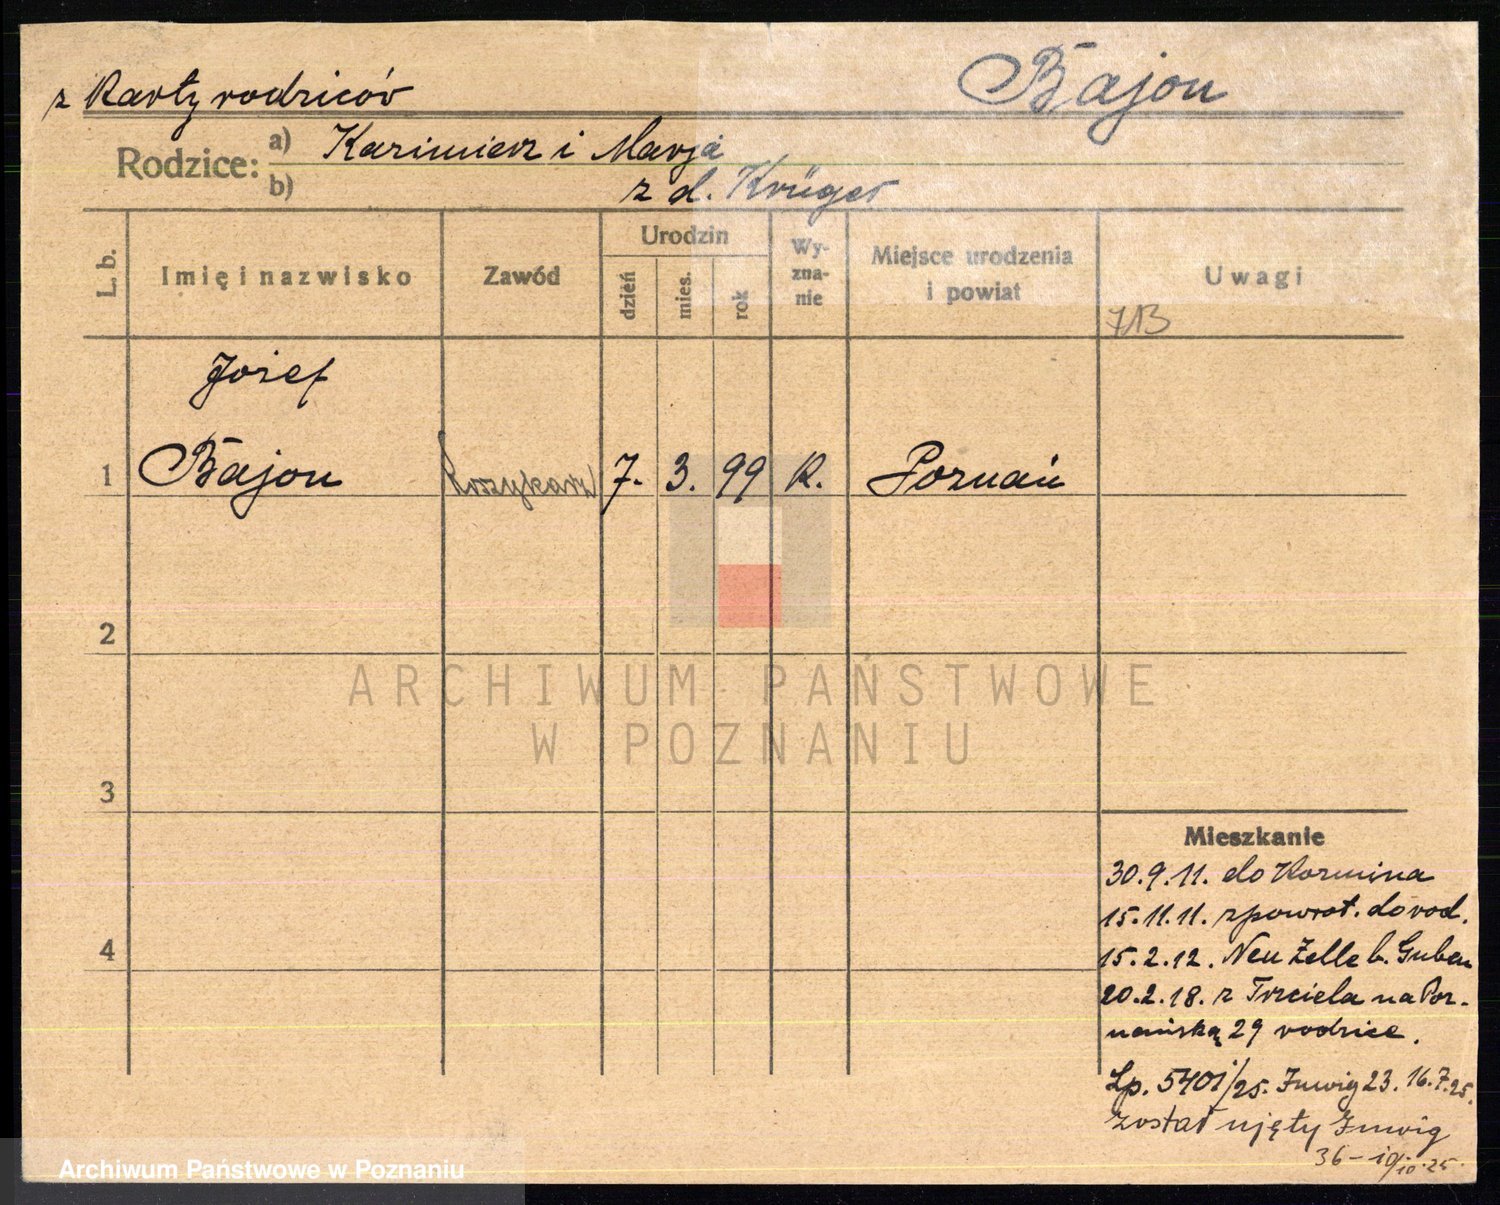 z Karty rodziców
Bajon
Rodzice:
a) Kazimierz i Marja
b) z d. Krüger
L. b.
Imię i nazwisko
Zawód
Urodzin
dzień
mies.
rok
Wy-
zna-
nie
Miejsce urodzenia
i powiat
Uwagi
713
Józef
1 Bajon Koszykarz 7. 3. 99 K. Poznań
2
3
4
ARCHIWUM PAŃSTWOWE
W POZNANIU
Mieszkanie
30.9.11. do Kozmina
15.11.11. zpowrot. do rod.
15.2.12. Neu Zelle b. Guben
20.2.18. z Trzciela na Poz-
nańską 29 rodzice.
Lp. 5401/25. 23. 16.7.25.
został ujęty
36 - 25.
Archiwum Państwowe w Poznaniu